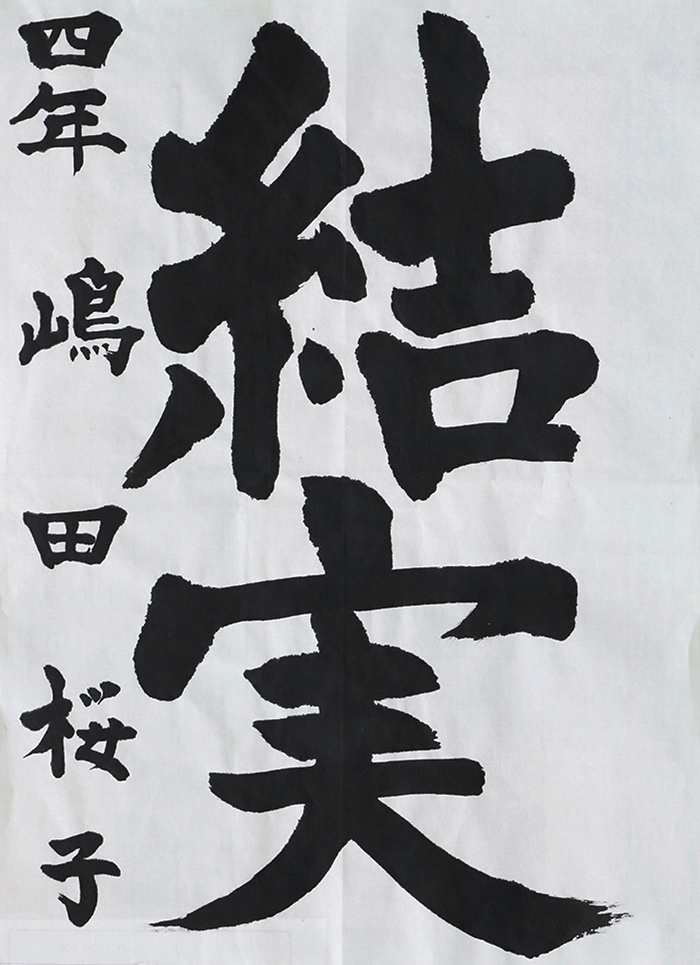 結実
四年 嶋田桜子